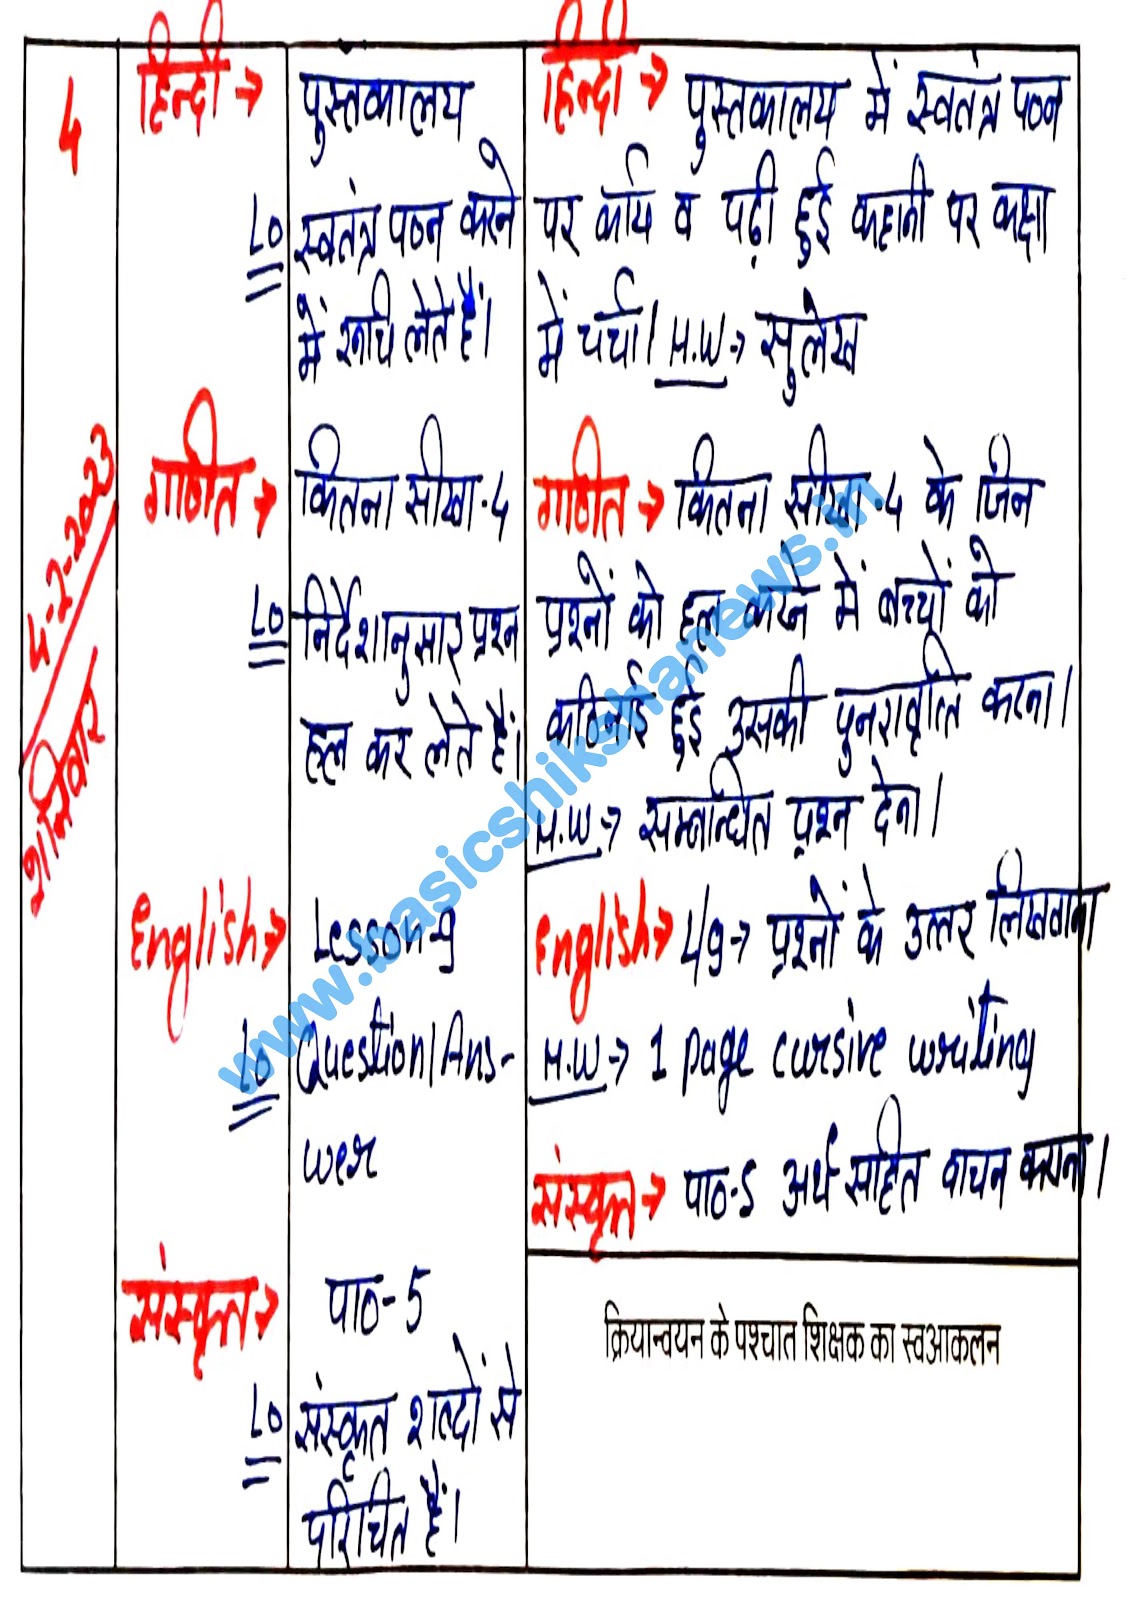 4
4-2-2023
शनिवार
हिन्दी →
पुस्तकालय
LO
स्वतंत्र पठन करने
में रूचि लेते हैं।
गणित →
कितना सीखा-4
LO
निर्देशानुसार प्रश्न
हल कर लेते हैं।
English →
Lesson-9
LO
Question/Ans-
wer
संस्कृत →
पाठ-5
LO
संस्कृत शब्दों से
परिचित हैं।
हिन्दी → पुस्तकालय में स्वतंत्र पठन
पर कार्य व पढ़ी हुई कहानी पर कक्षा
में चर्चा। H.W → सुलेख
गणित → कितना सीखा-4 के जिन
प्रश्नों को हल करने में बच्चों को
कठिनाई हुई उसकी पुनरावृत्ति करना।
H.W → सम्बन्धित प्रश्न देना।
English → L/9 → प्रश्नों के उत्तर लिखवाना
H.W → 1 page cursive writing
संस्कृत → पाठ-5 अर्थ सहित वाचन कराना।
क्रियान्वयन के पश्चात शिक्षक का स्वआकलन
www.basicshikshanews.in